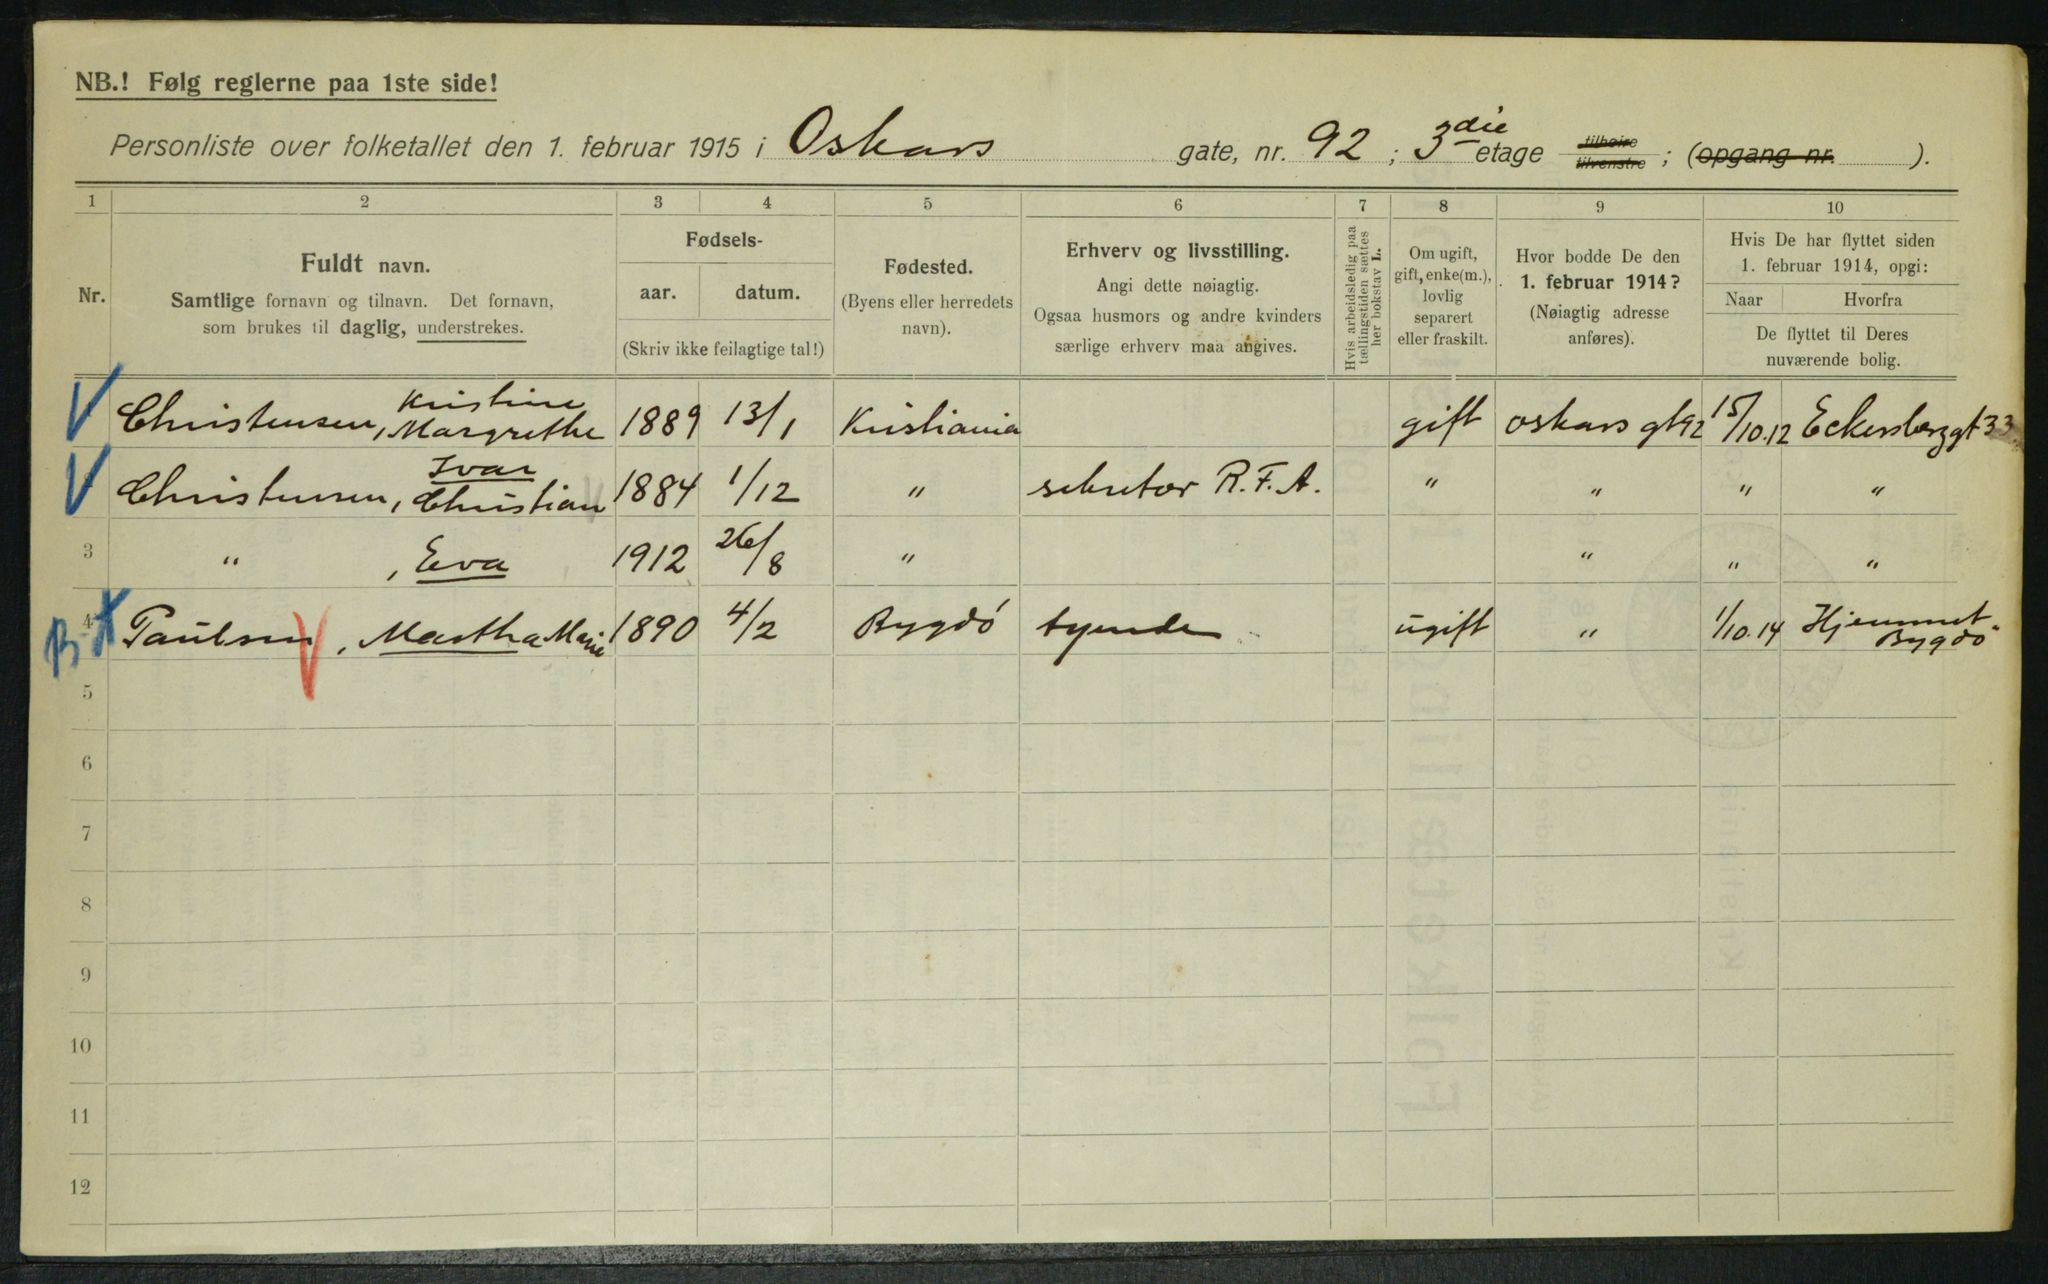 NB.! Følg reglerne paa 1ste side!
Personliste over folketallet den 1. februar 1915 i Oskars gate, nr. 92 ; 3die etage tilhøire tilvenstre ; (opgang nr. ).
1 2 3 4 5 6 7 8 9 10
Nr.
Fuldt navn.
Samtlige fornavn og tilnavn. Det fornavn,
som brukes til daglig, understrekes.
Fødsels-
aar. datum.
(Skriv ikke feilagtige tal!)
Fødested.
(Byens eller herredets
navn).
Erhverv og livsstilling.
Angi dette nøiagtig.
Ogsaa husmors og andre kvinders
særlige erhverv maa angives.
Hvis arbeidsledig paa
tællingstiden sættes
her bokstav L.
Om ugift,
gift, enke(m.),
lovlig
separert
eller fraskilt.
Hvor bodde De den
1. februar 1914?
(Nøiagtig adresse
anføres).
Hvis De har flyttet siden
1. februar 1914, opgi:
Naar Hvorfra
De flyttet til Deres
nuværende bolig.
Christensen, Kristine Margrethe 1889 13/1 Kristiania gift oskars gt 92 15/10.12 Eckersberggt 33
Christensen, Ivar Christian 1884 1/12 " sekretær R.F.A. " " " "
3 " , Eva 1912 26/8 " " " "
B 4 Paulsen, Martha Marie 1890 4/2 Bygdö tyende ugift " 1/10.14 Hjemmet Bygdö
5
6
7
8
9
10
11
12